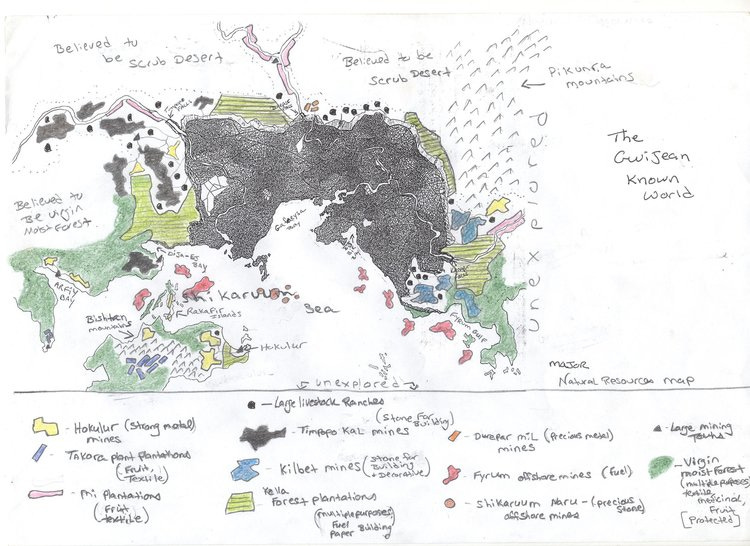 Believed to
be Scrub Desert
Believed to be
Scrub Desert
Pikunra
mountains
The
Gwijean
Known
World
unexplored
Believed to
Be Virgin
Moist Forest
Bay
Bay
Shikaruum
Sea
Rakafir
Islands
Bishtren
mountains
Hokulur
Fyrum Gulf
unexplored
major
Natural Resources map
- Large livestock Ranches
- Hokulur (Strong metal)
mines
- Takora plant plantations
(Fruit,
Textile)
- Phi Plantations
(Fruit
textile)
- Timpopo Kal mines
(Stone For
Building)
- Kilbet mines
(Stone for
Building
+ Decorative)
- Kella
Forest plantations
(multiple purposes)
Fuel
Paper Building
- Dwepar mil (Precious metal)
mines
- Fyrum offshore mines (Fuel)
- Shikaruum Naru - (precious
stone)
offshore mines
- Large mining
Towns
- Virgin
moist Forest
(multiple purposes)
textile
medicinal,
Fruit
[Protected]